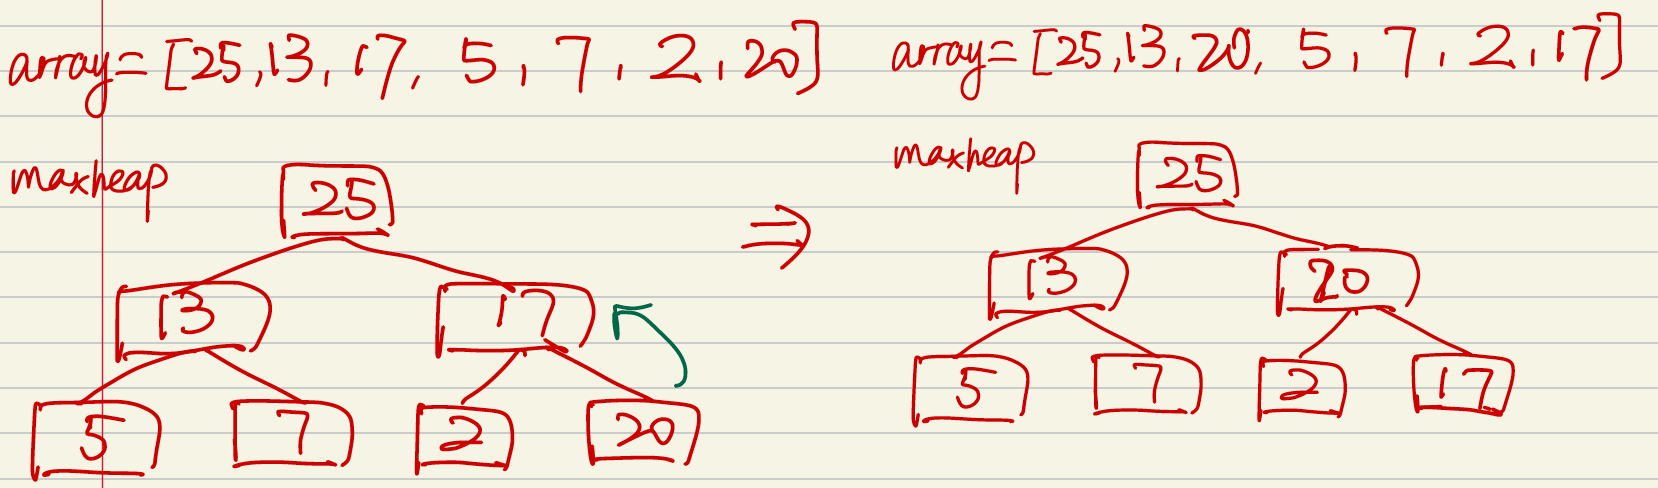 array=[25,13,17,5,7,2,20]
maxheap
25
13 17
5 7 2 20
⇒
array=[25,13,20,5,7,2,17]
maxheap
25
13 20
5 7 2 17